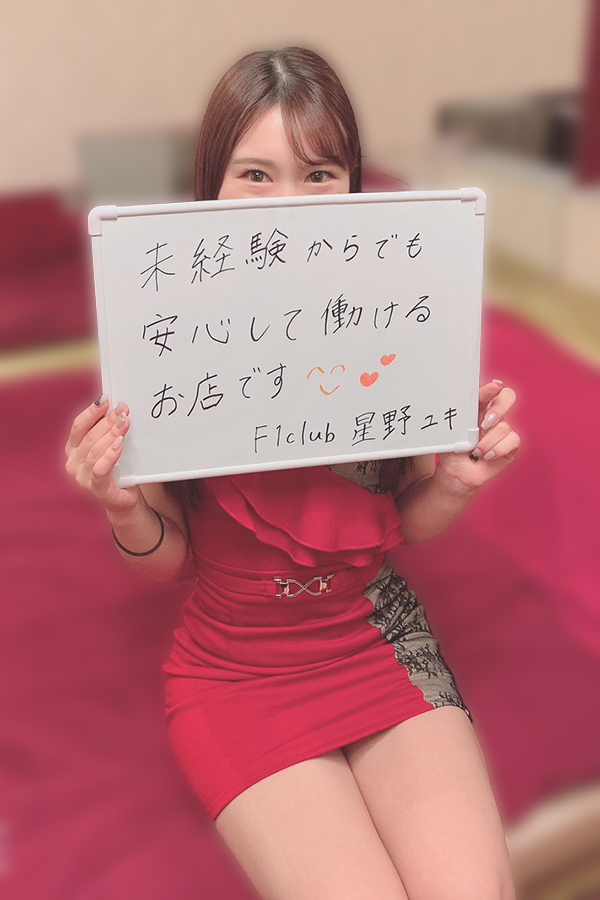 未経験からでも
安心して働ける
お店です
F1club 星野ユキ